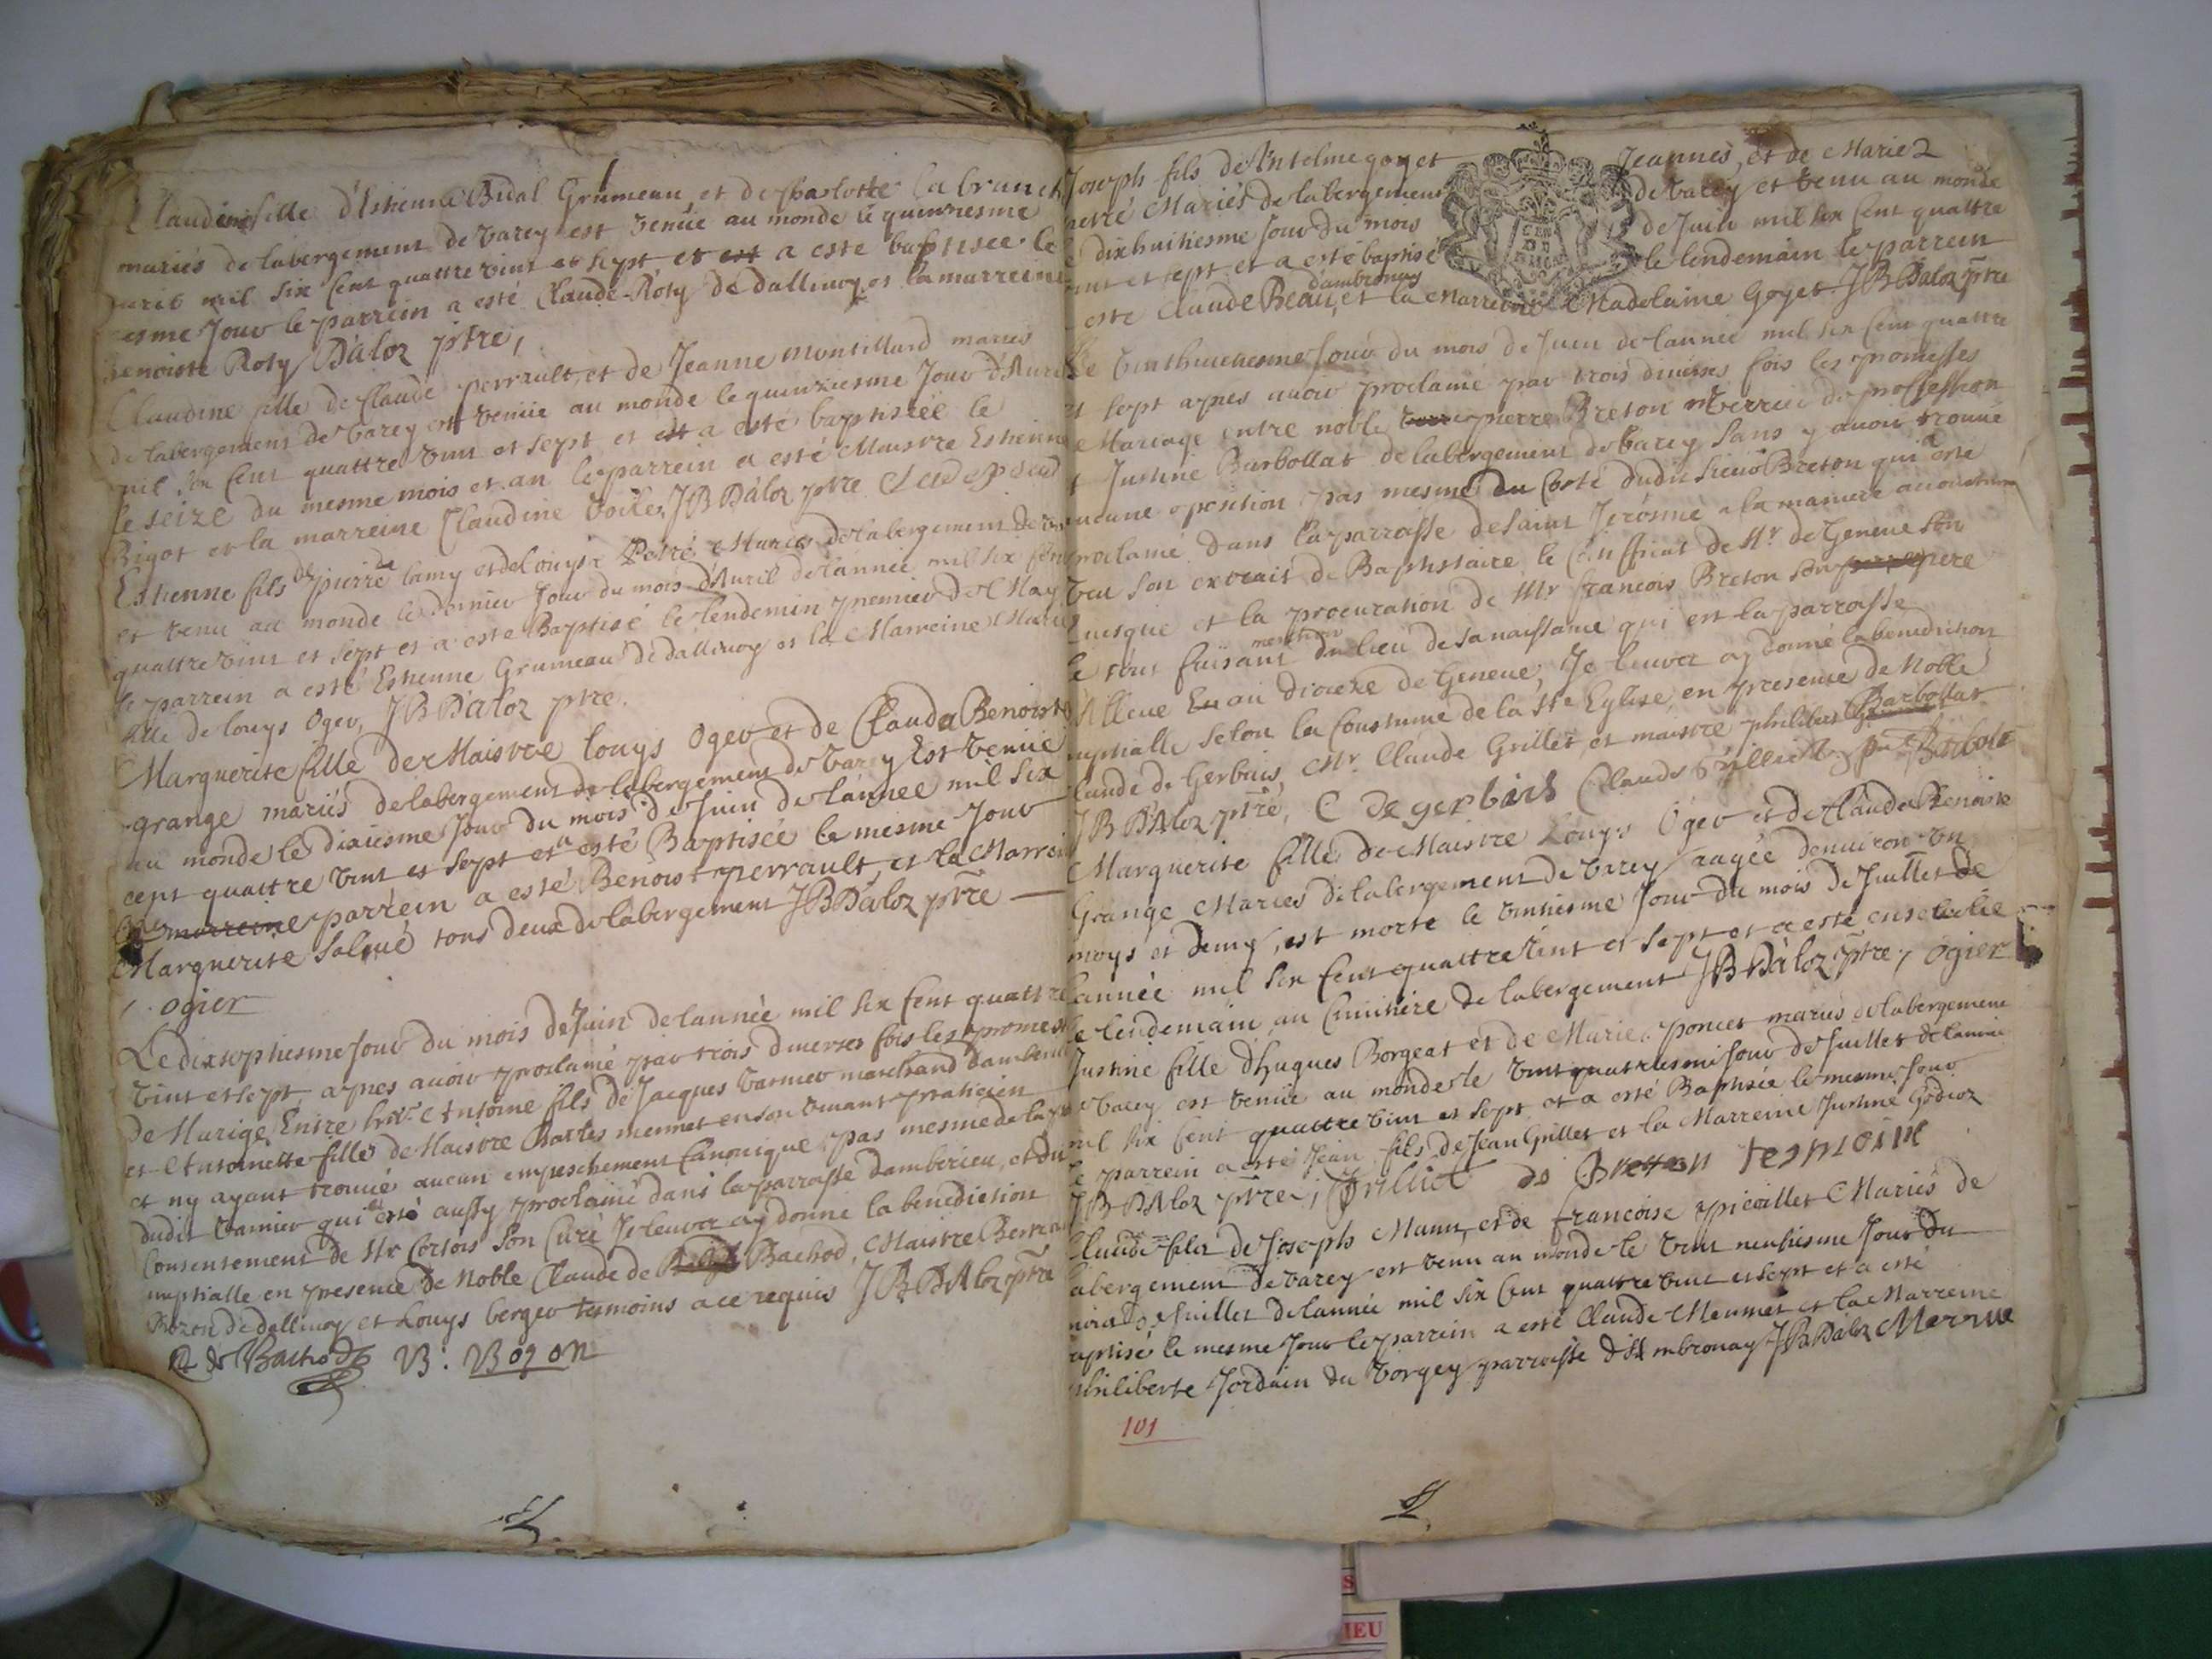 Claudine fille d'Estienne Bidal Grumeau, et de Charlotte la brunet
mariés de labergement de varey est venüe au monde le quinziesme
mil six cent quattre vint et sept et est a esté baptisée le
esme Jour le parrein a esté Claude Roty de dallivoy et la marreine
benoiste Roty Dàloz ptre,
Claudine fille de Claude perrault, et de Jeanne montillard mariés
de labergement de varey est venüe au monde le quinziesme Jour d'Avril
mil six cent quattre vint et sept, et est a esté baptisëe le
le seize du mesme mois et an le parrein a esté Maistre Estienne
Bigot et la marreine Claudine JBDàloz ptre
Estienne fils de pierre de lamy et de Louyse Mariés de labergement de
et venu au monde le dernier Jour du mois d'Avril de l'année mil six cent
quattre vint et sept et a esté Baptisé le lendemin premier de May
le parrein a esté Estienne Grumeau de dallivoy et la Marreine Marie
fille de louys Oger, JBDàloz ptre.
Marguerite fille de Maistre louys Oger et de Clauda Benoiste
grange mariés de labergement de labergement de varey Est venüe
au monde le dixiesme Jour du mois de Juin de l'année mil six
cent quattre vint et sept et a esté Baptisée le mesme Jour
le marreine parrein a esté Benoist perrault, et la Marreine
Marguerite Salvué tous deux de labergement JBDàloz ptre
ogier
Le dixseptiesme Jour du mois de Juin de lannée mil six cent quattre
vint et sept, apres avoir proclamé par trois diverses fois les promes
de Marige Entre Antoine fils de Jacques varnier marchand damberieu
et Antoinette fille de Maistre Charles mermet en son vivant praticien
et ny ayant trouvé aucun empeschement Canonique, pas mesme de la part
dudit varnier qui a esté aussy proclamé dans la parroisse damberieu, et du
Consentement de Mr Cortois son Curé Je leur ay donné la benediction
nuptialle en presence de Noble Claude de Bachod, Maistre
Bozon de dallivoy et Louys berger tesmoins a ce requis JBDAloz ptre
de Bachod B. Bozon
Joseph fils de Antelme goyet Jeannes, et de Marie
perré Mariés de labergement de varey et venu au monde
le dixhuitiesme Jour du mois de Juin mil six cent quattre
vint et sept et a esté baptisé le lendemain le parrein
dambronay
esté Claude Beau, et la Marreine Madelaine Goyet JBDaloz ptre
Le vinthuictiesme Jour du mois de Juin de lannée mil six cent quattre
et sept apres avoir proclamé par trois diverses fois les promesses
Mariage entre noble pierre Breton verrier de proffession
et Justine Barbollat de labergement de varey sans y avoir trouvé
aucune oposition pas mesme du Costé dudit sieur Breton qui a esté
proclamé dans la parroisse de saint Jerosme a la maniere
veu son extrait de Baptistaire le Certifficat de Mr de Geneve son
Evesque et la procuration de Mr francois Breton son pere
mention
le tout faisant du lieu de sa naissance qui est la parroisse
au diocese de Geneve, Je leur ay donné la benediction
nuptialle selon la Coustume de la Ste Eglise, en presence de Noble
Claude de Gerbais, Mr. Claude Grillet et maistre philibert Barbollat
JBDAloz ptre, C Degerbais Claude Grilliet
Marguerite fille de Maistre Louys Oger et de Clauda Benoiste
Grange Mariés de labergement de varey aagée denviron un
moys et demy, est morte le vintiesme Jour du mois de Juillet de
lannée mil six cent quattre vint et sept et a esté ensevelie
le lendemain au Cimitière de labergement JBDàloz ptre, ogier
Justine fille d'huques Borgeat et de Marie poncet mariés de labergement
de varey est venüe au monde le vintquatriesme Jour de Juillet de lannée
mil six cent quattre vint et sept et a esté Baptisée le mesme Jour
le parrein a esté Jean fils de Jean Grillet et la Marreine Justine Godioz
JBDAloz ptre, Grilliet de Bretton tesmoins
Claude fils de Joseph Manu, et de francoise Mariés de
labergement de varey est venu au monde le vint neufiesme Jour du
mois de Juillet de lannée mil six cent quattre vint et sept et a esté
Baptisé le mesme Jour le parrein a esté Claude Mermet et la Marreine
philiberte Jordain du vorgey parroisse d'Ambronay JBDàloz
101